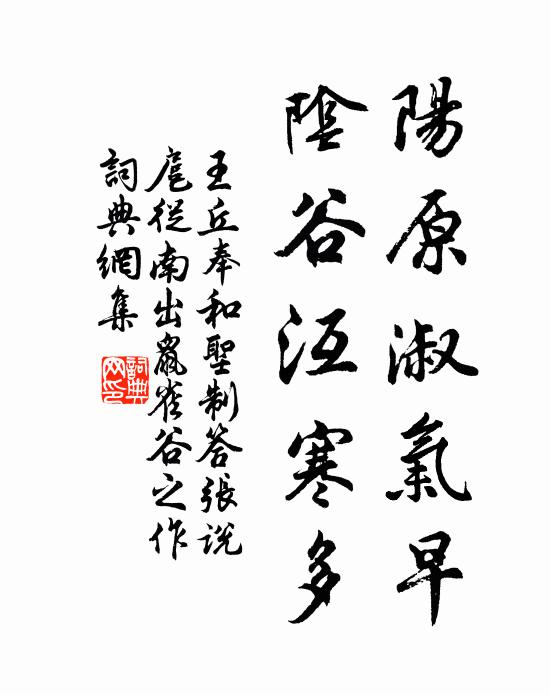 陽原淑氣早
陰谷沍寒多
王丘奉和聖制答張說
扈從南出鼠雀谷之作
詞典網集
詞典網印